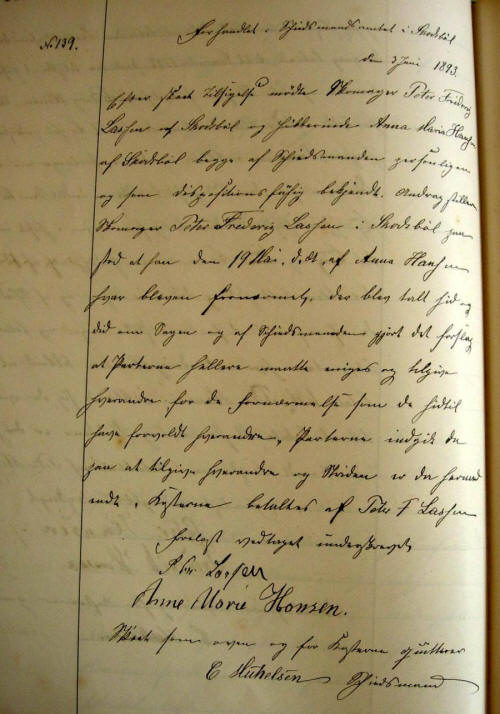 No 139.
Forhandlet i Skiedsmandsamtet i Skodsböl
den 3 Juni 1893.
Efter skeet Tilsigelse mödte Skomager Peter Frederig
Lassen af Skodsböl og Huusterinde Anna Maria Hansen
af Skodsböl begge af Schiedsmanden personligen
og som dispositionsfähig bekjendt. Andragstilleren
Skomager Peter Frederig Lassen i Skodsböl paa
stod at han den 19 Mai d. Åt. af Anna Hansen
hvar bleven fornærmet, der blev talt hid og
did om Sagen og af Schiedsmanden gjort det Forslag
at Parterne hellere maatte eniges og tilgive
hverandre for de Fornærmelse som de hidtil
have forvoldt hverandre, Parterne indgik da
paa at tilgive hverandre og Striden er da hermed
endt, Kosterne betaltes af Peter F Lassen
Forelæst vedtaget underskrevet
P Fr. Lassen
Anne Marie Hansen.
Skeet som oven og for Kosterne quitterer
E Michelsen Schiedsmand